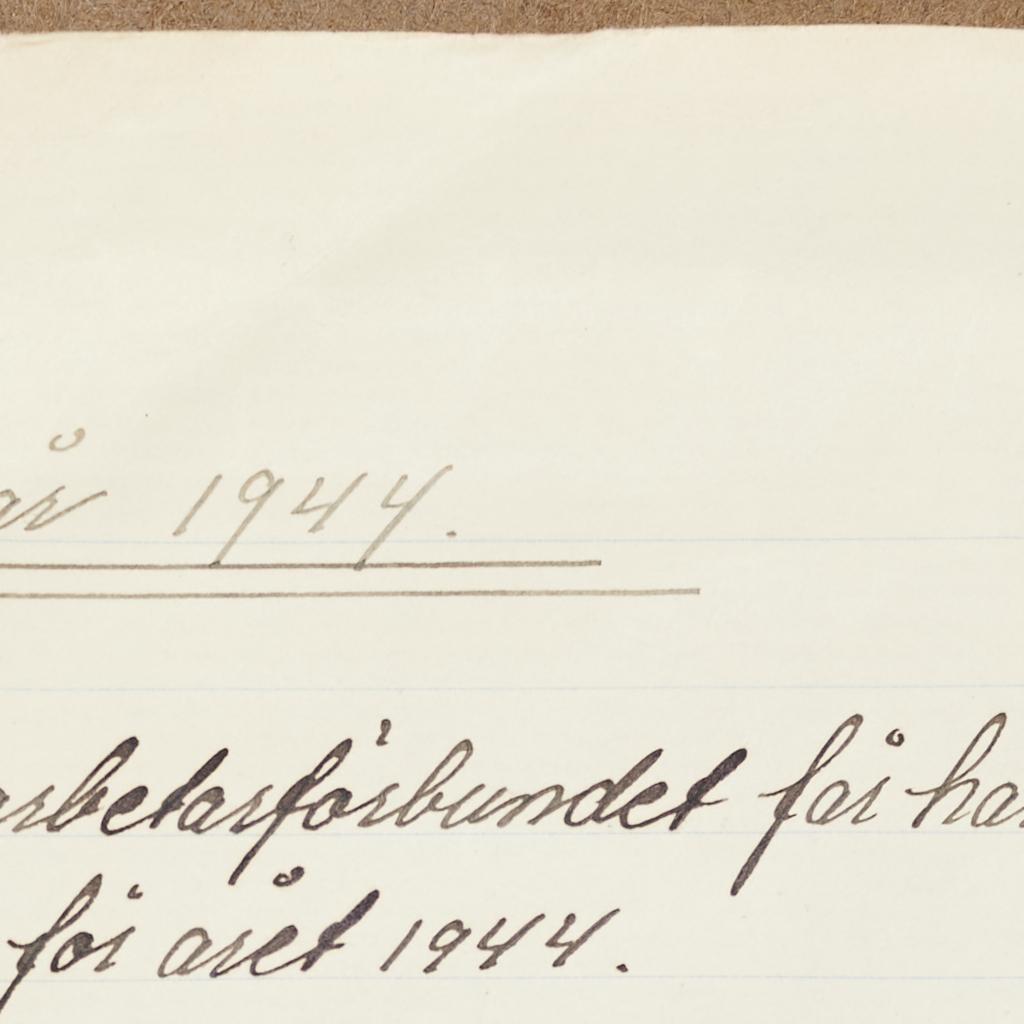 år 1944.
arbetarförbundet får här
för året 1944.